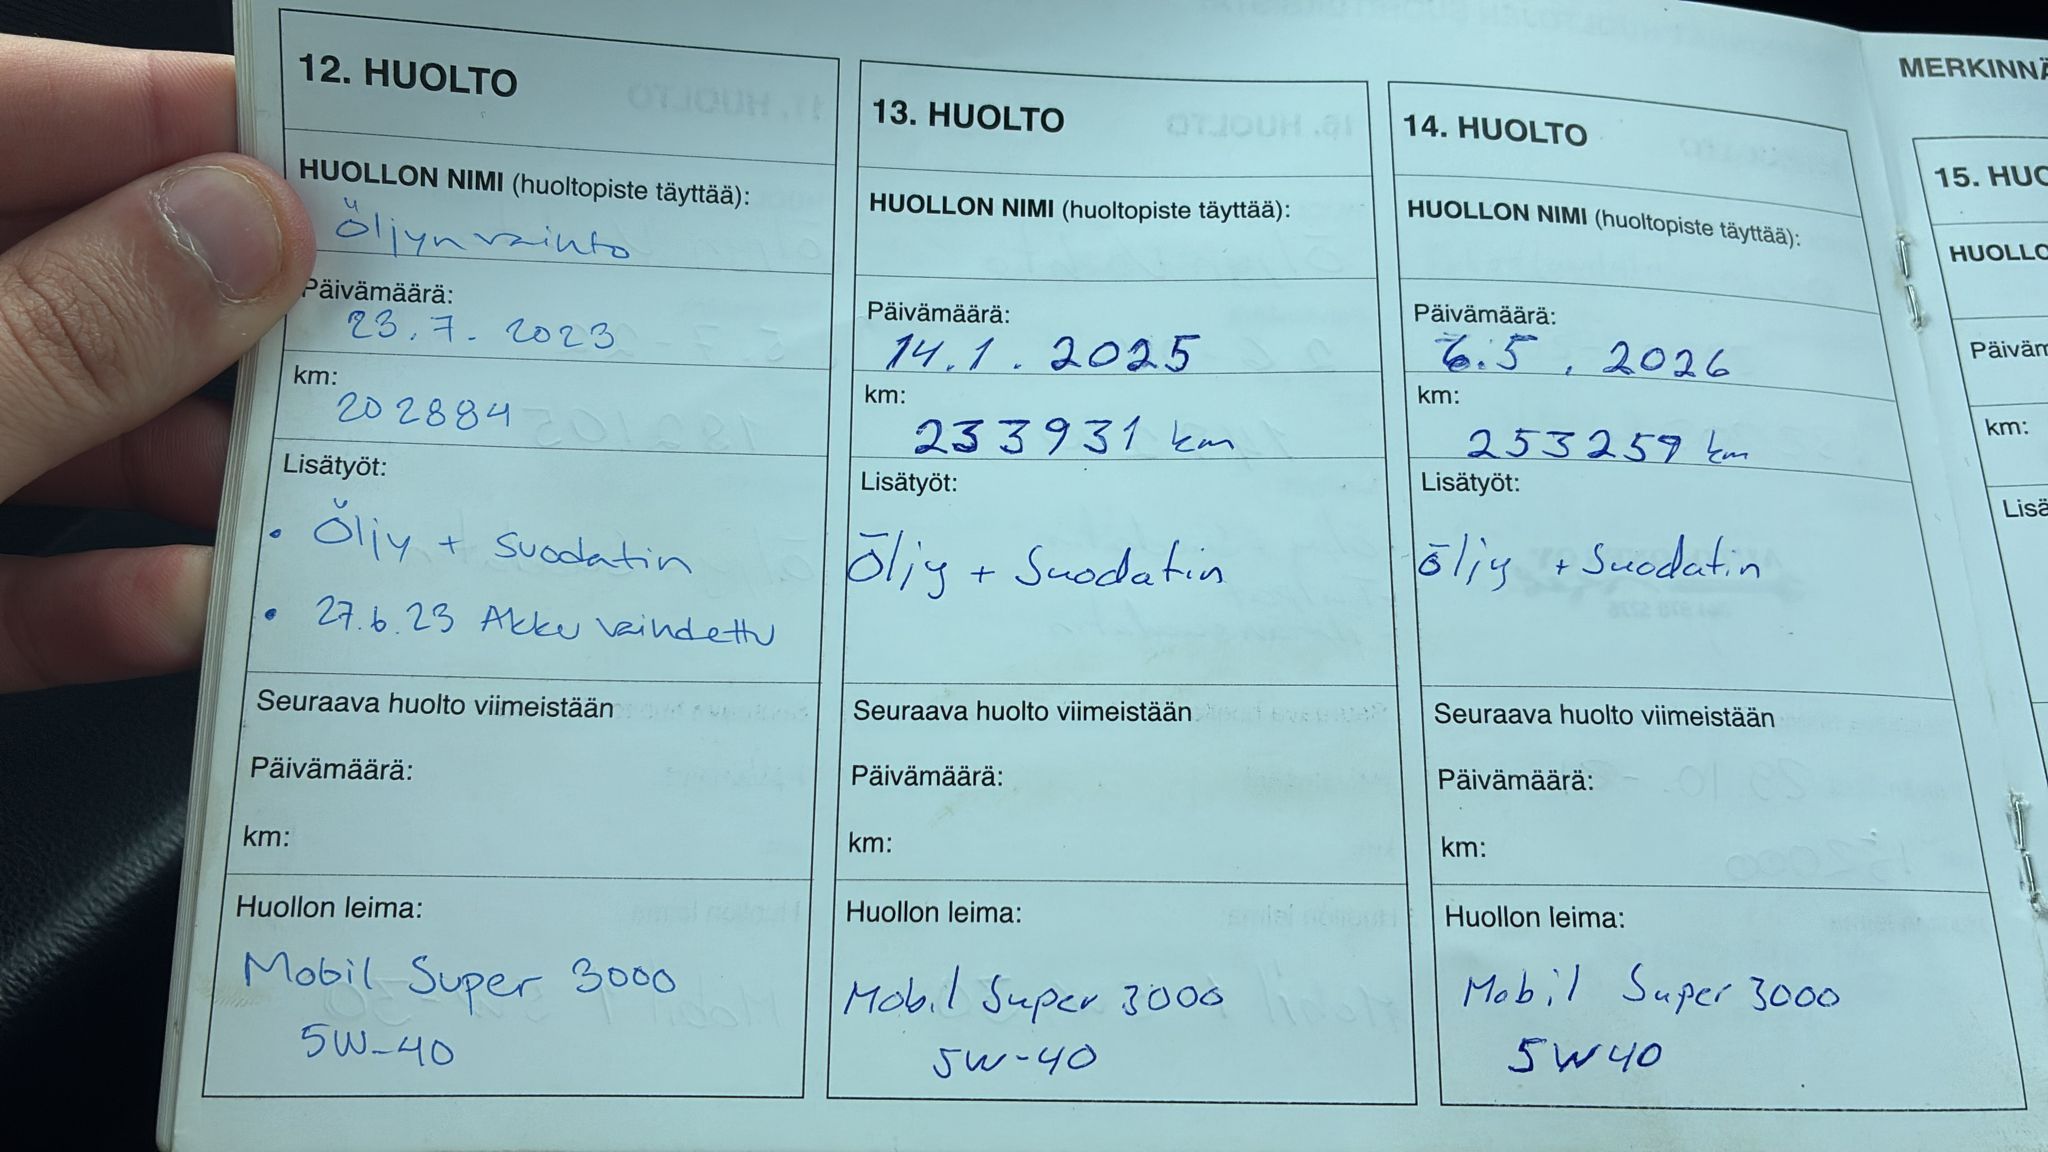 12. HUOLTO
HUOLLON NIMI (huoltopiste täyttää):
Öljynvaihto
Päivämäärä:
23.7. 2023
km:
202884
Lisätyöt:
• Öljy + suodatin
• 27.6.23 Akku vaihdettu
Seuraava huolto viimeistään
Päivämäärä:
km:
Huollon leima:
Mobil Super 3000
5W-40
13. HUOLTO
HUOLLON NIMI (huoltopiste täyttää):
Päivämäärä:
14.1. 2025
km:
233931 km
Lisätyöt:
Öljy + Suodatin
Seuraava huolto viimeistään
Päivämäärä:
km:
Huollon leima:
Mobil Super 3000
5W-40
14. HUOLTO
HUOLLON NIMI (huoltopiste täyttää):
Päivämäärä:
6.5. 2026
km:
253259 km
Lisätyöt:
öljy + Suodatin
Seuraava huolto viimeistään
Päivämäärä:
km:
Huollon leima:
Mobil Super 3000
5W40
MERKINNÄ
15. HUO
HUOLLO
Päiväm
km:
Lisä